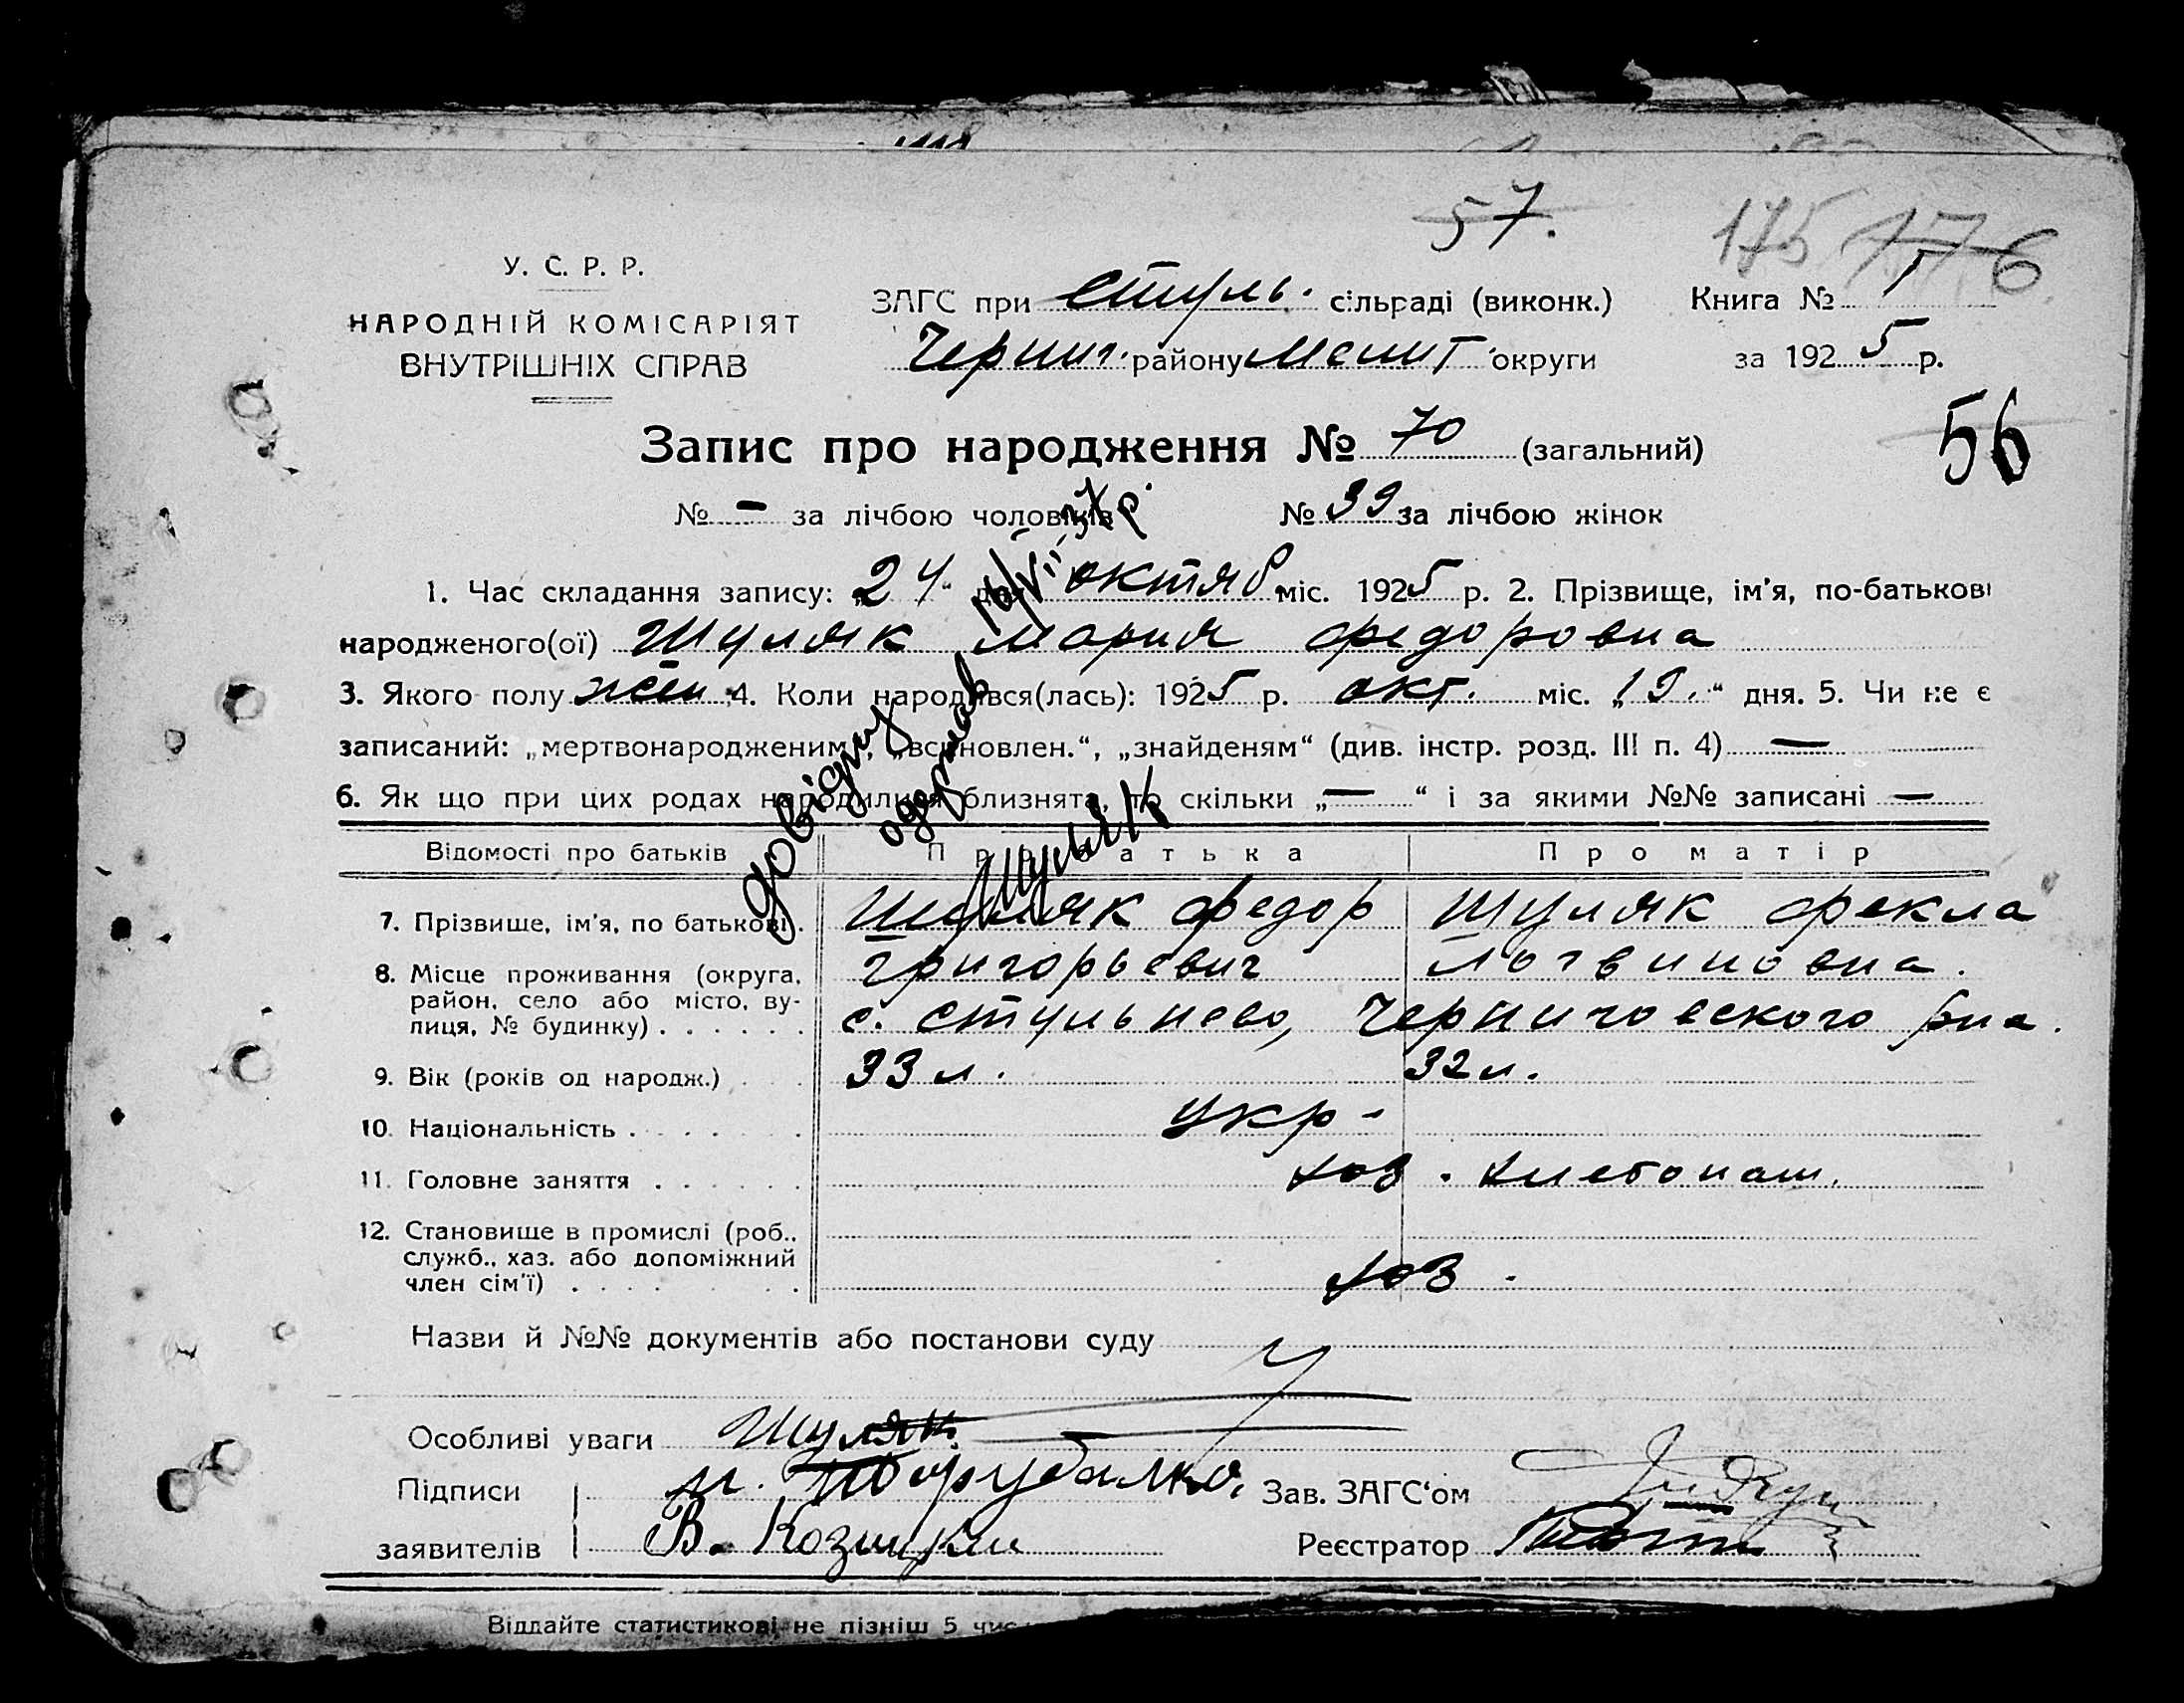 57.
175 176
У. С. Р. Р.
НАРОДНІЙ КОМІСАРІЯТ
ВНУТРІШНІХ СПРАВ
ЗАГС при Стуль. сільраді (виконк.) Книга № 1
Черниг. району Мелит. округи за 1925 р.
56
Запис про народження № 70 (загальний)
№ - за лічбою чоловіків № 39 за лічбою жінок
1. Час складання запису: „24“ дня октяб міс. 1925 р. 2. Прізвище, ім'я, по-батькові
народженого(ої) Шуляк Мария Федоровна
3. Якого полу жен. 4. Коли народився(лась): 1925 р. окт. міс. „19.“ дня. 5. Чи не є
записаний: „мертвонародженим“, „всиновлен.“, „знайденям“ (див. інстр. розд. III п. 4) —
6. Як що при цих родах народилися близнята, то скільки „—“ і за якими №№ записані —
довідку
одержав
Шуляк
Відомості про батьків Про батька Про матір
7. Прізвище, ім'я, по батькові. Шуляк Федор Шуляк Фекла
Григорьевич Логвиновна.
8. Місце проживання (округа,
район, село або місто, ву-
лиця, № будинку) . . . . . . с. Стульнево, Черниговского р на.
9. Вік (років од народж.) . . 33 л. 32 л.
10. Національність . . . . . укр-
11. Головне заняття . . . . . . хоз. хлебопаш.
12. Становище в промислі (роб.,
служб., хаз. або допоміжний
член сім'ї) . . . . . . хоз.
Назви й №№ документів або постанови суду
Особливі уваги Шуляк.
Підписи Зав. ЗАГС'ом
заявителів В. Козицкий Реєстратор
Віддайте статистикові не пізніш 5